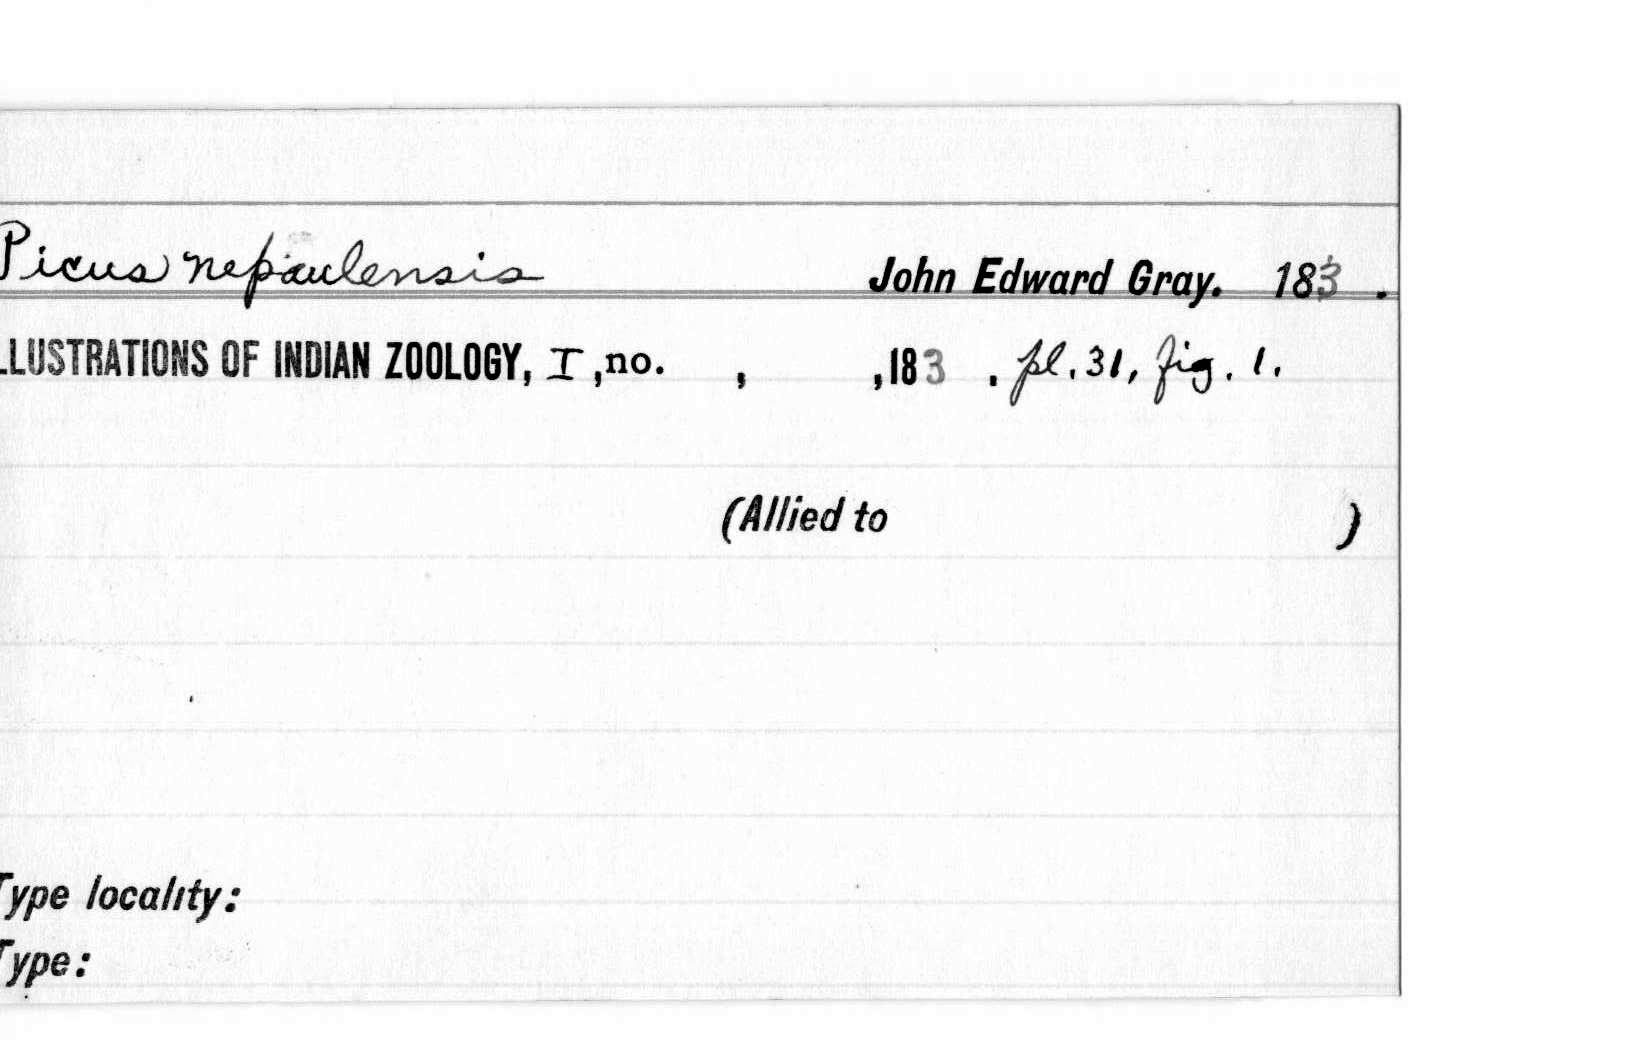 Picus nepaulensis John Edward Gray. 183 .
LLUSTRATIONS OF INDIAN ZOOLOGY, I ,no. , ,183 . pl. 31, fig. 1.
(Allied to )
Type locality:
Type: